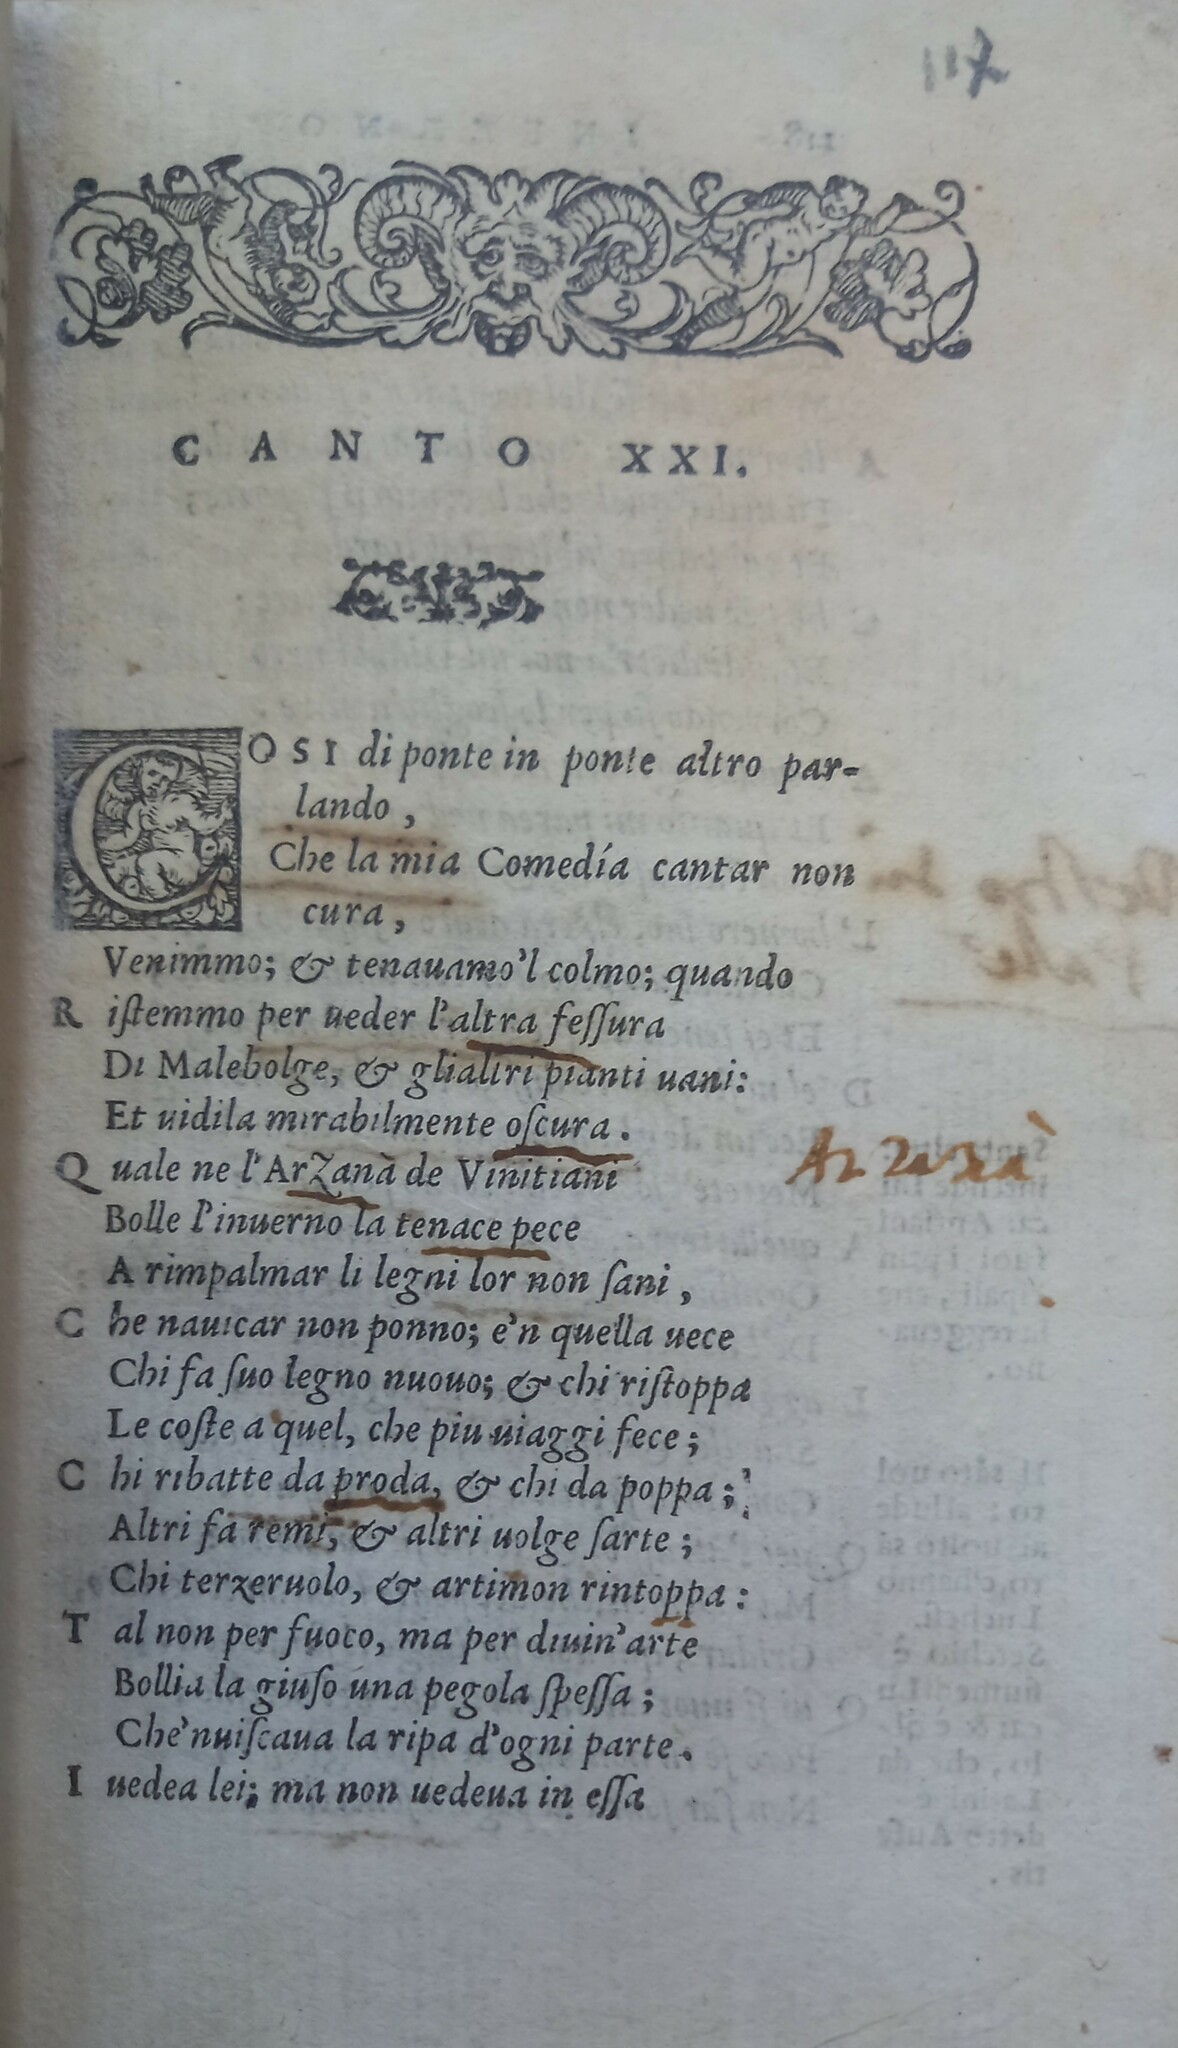 117
CANTO XXI.
COSI di ponte in ponte altro par-
lando,
Che la mia Comedía cantar non
cura,
Venimmo; & tenauamo'l colmo; quando
Riſtemmo per ueder l'altra feſſura
Di Malebolge, & glialtri pianti uani:
Et uidila mirabilmente oſcura.
Quale ne l'ArZanà de Vinitiani
Bolle l'inuerno la tenace pece
A rimpalmar li legni lor non ſani,
Che nauicar non ponno; e'n quella uece
Chi fa ſuo legno nuouo; & chi riſtoppa
Le coſte a quel, che piu uiaggi fece;
Chi ribatte da proda, & chi da poppa;
Altri fa remi, & altri uolge ſarte;
Chi terzeruolo, & artimon rintoppa:
Tal non per fuoco, ma per diuin'arte
Bollia la giuſo una pegola ſpeſſa;
Che'nuiſcaua la ripa d'ogni parte.
I uedea lei; ma non uedeua in eſſa
Arzanà